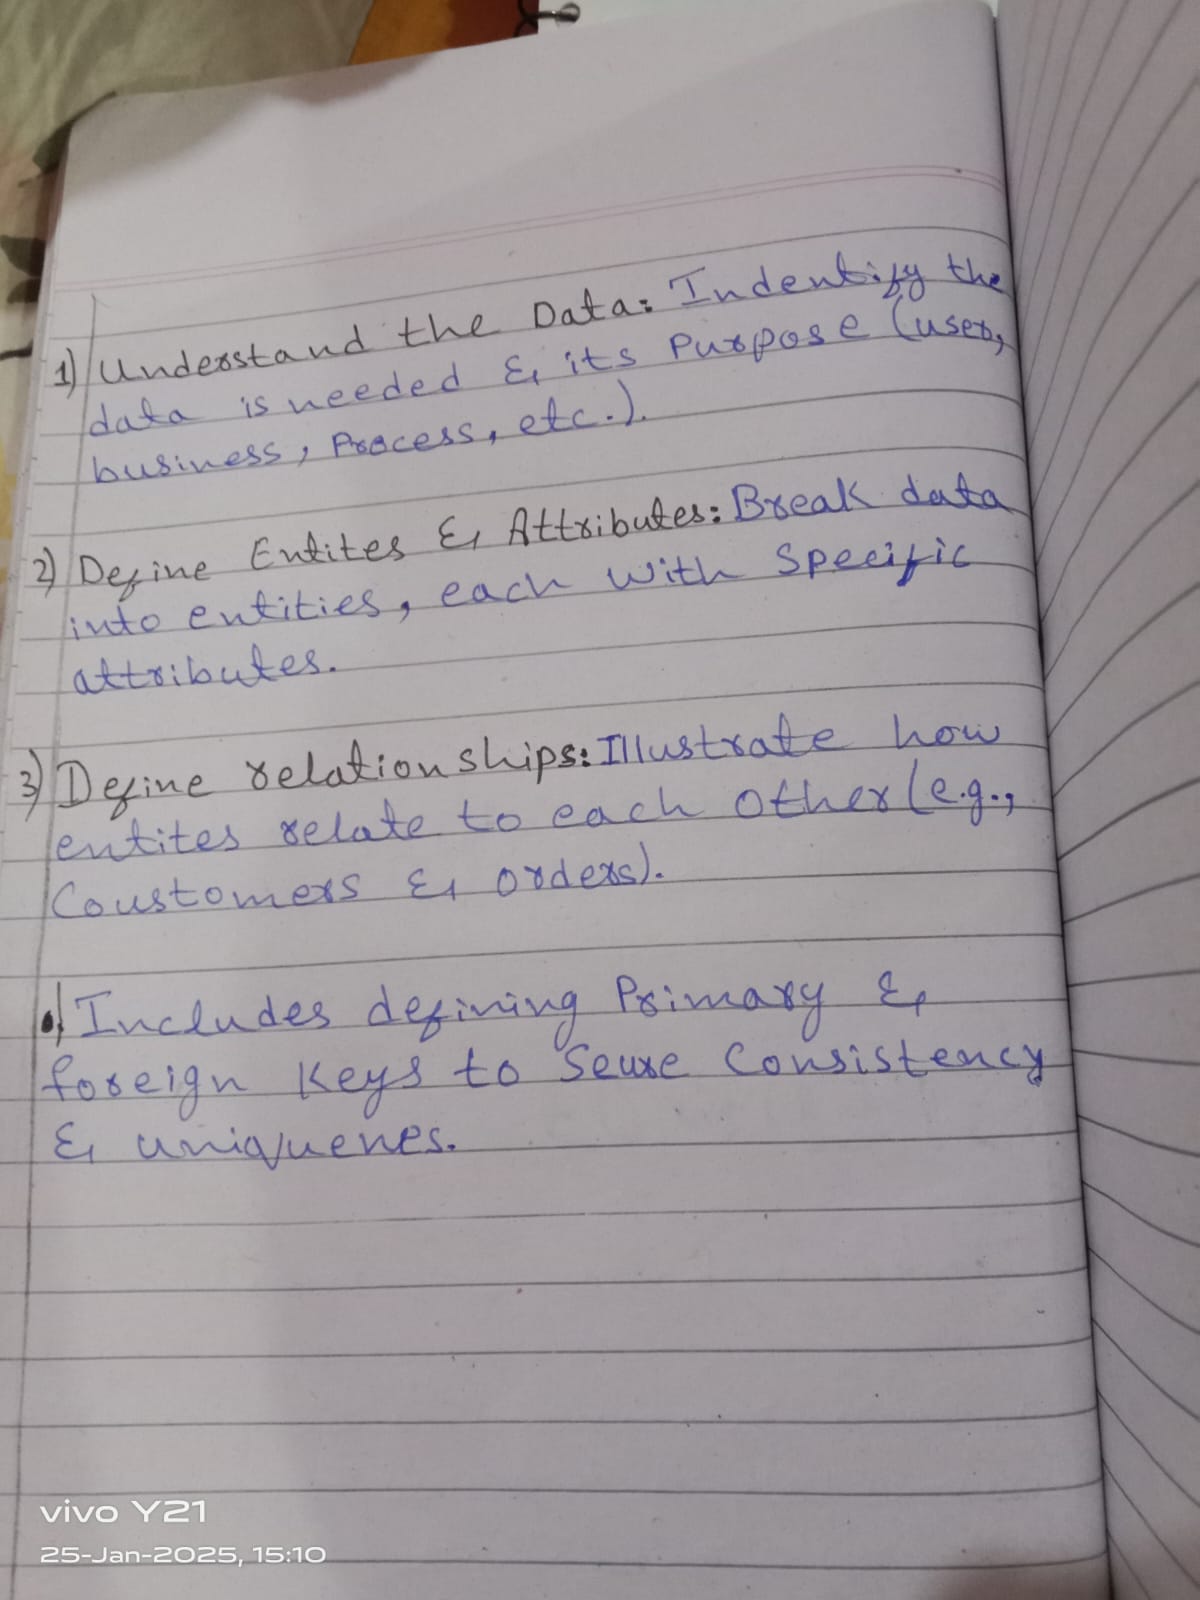 1) Understand the Data: Indentify the
data is needed & its Purpose (user,
business, Process, etc.).
2) Define Entites & Attributes: Break data
into entities, each with Specific
attributes.
3) Define relationships: Illustrate how
entites relate to each other (e.g.,
Coustomers & orders).
•) Includes defining Primary &
foreign Keys to Seure Consistency
& uniquenes.
vivo Y21
25-Jan-2025, 15:10